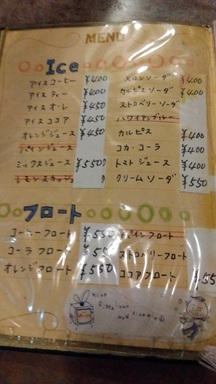 MENU
Ice
アイスコーヒー ¥400
アイスティー ¥400
アイスオ・レ ¥450
アイスココア ¥450
オレンジジュース ¥450
ミックスジュース ¥550
メロンソーダ ¥400
カルピスソーダ ¥400
ストロベリーソーダ
ハワイアンブルー
カルピス ¥400
コカ・コーラ ¥400
トマトジュース ¥400
クリームソーダ ¥550
フロート
コーヒーフロート ¥550
コーラフロート ¥550
オレンジフロート ¥550
ストロベリーフロート
ココアフロート ¥55